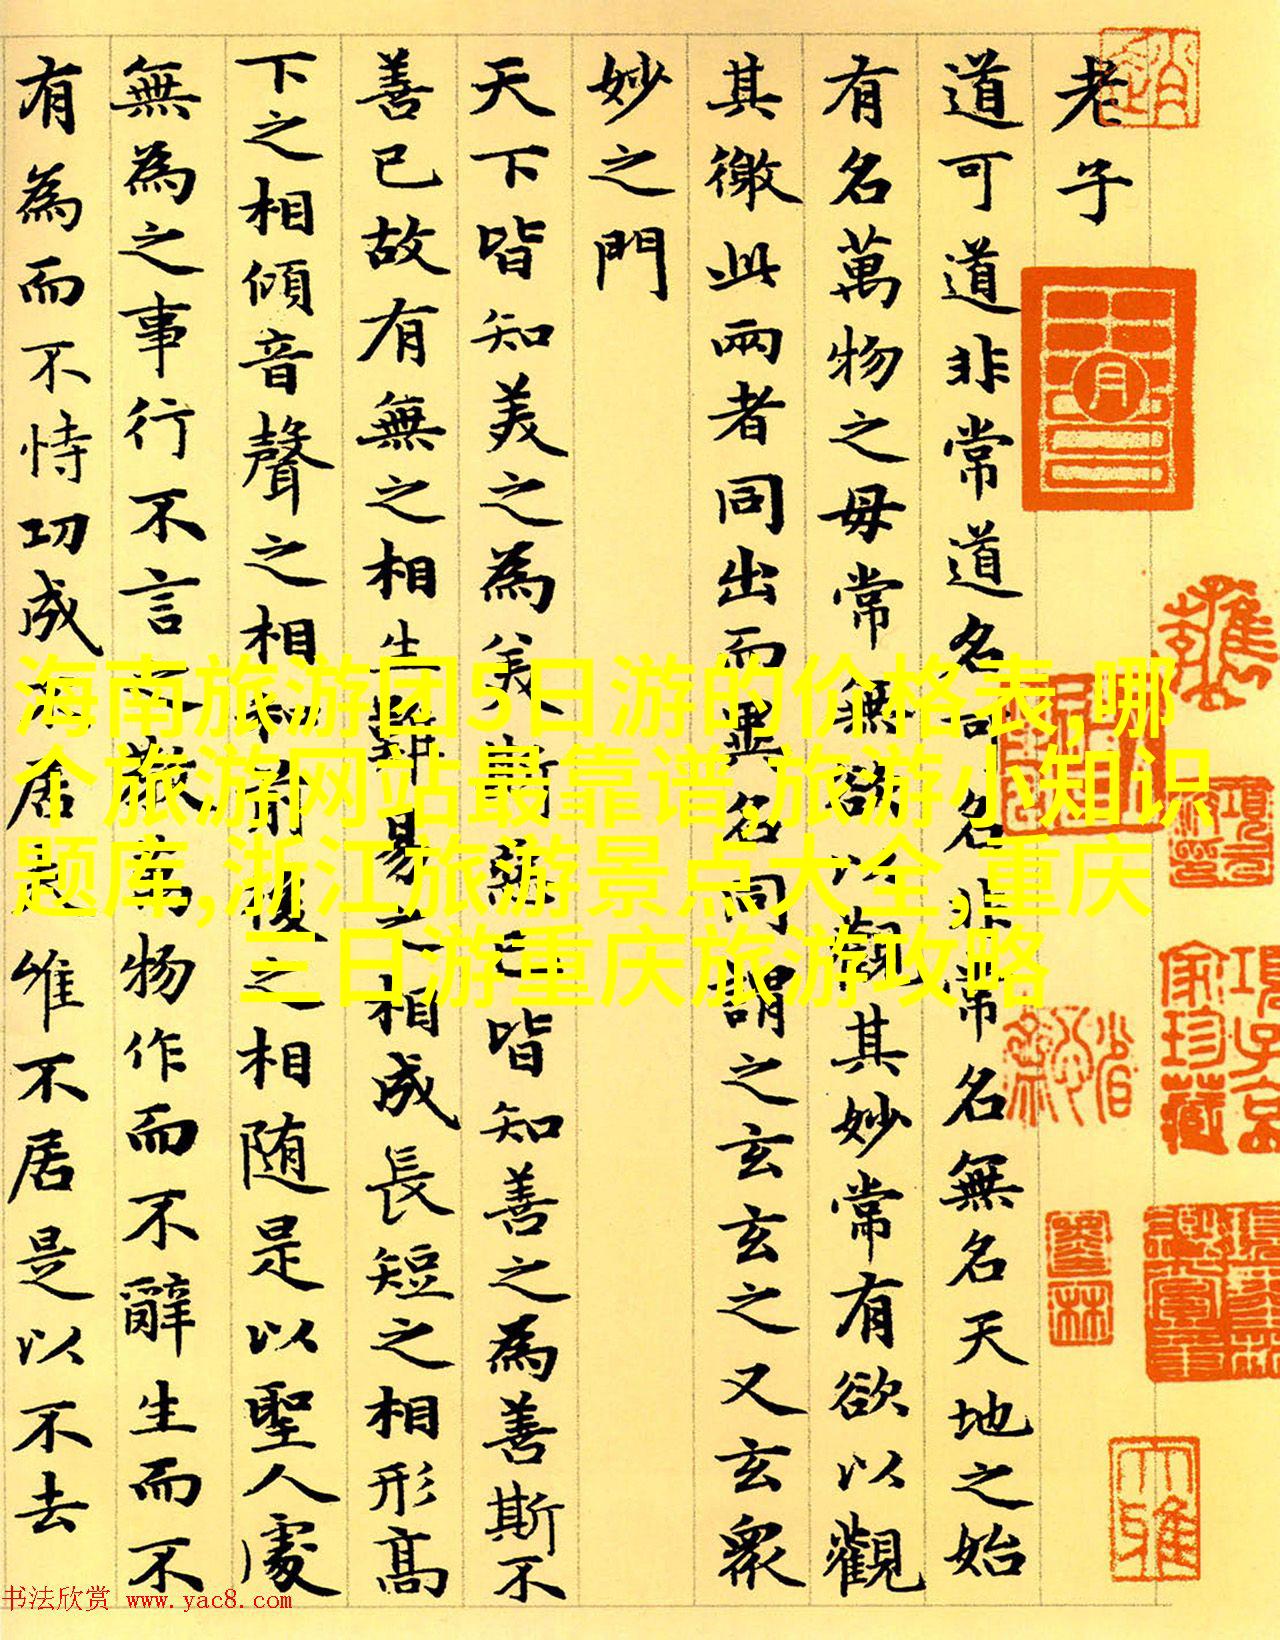 老子
道可道非常道名可名非常名無名天地之始
有名萬物之毋常無欲以觀其妙常有欲以觀
其徼此兩者同出而異名同謂之玄玄之又玄衆
妙之門
天下皆知美之為美斯惡已皆知善之為善斯不
善已故有無之相生難易之相成長短之相形高
下之相傾音聲之相和前後之相随是以聖人處
無為之事行不言之教萬物作而不辭生而不
有為而不恃功成不居夫唯不居是以不去
項子京家珍藏
大雅
海南旅游团5日游的价格表,哪
个旅游网站最靠谱,旅游小知识
题库,浙江旅游景点大全,重庆
三日游重庆旅游攻略
书法欣赏 www.yac8.com